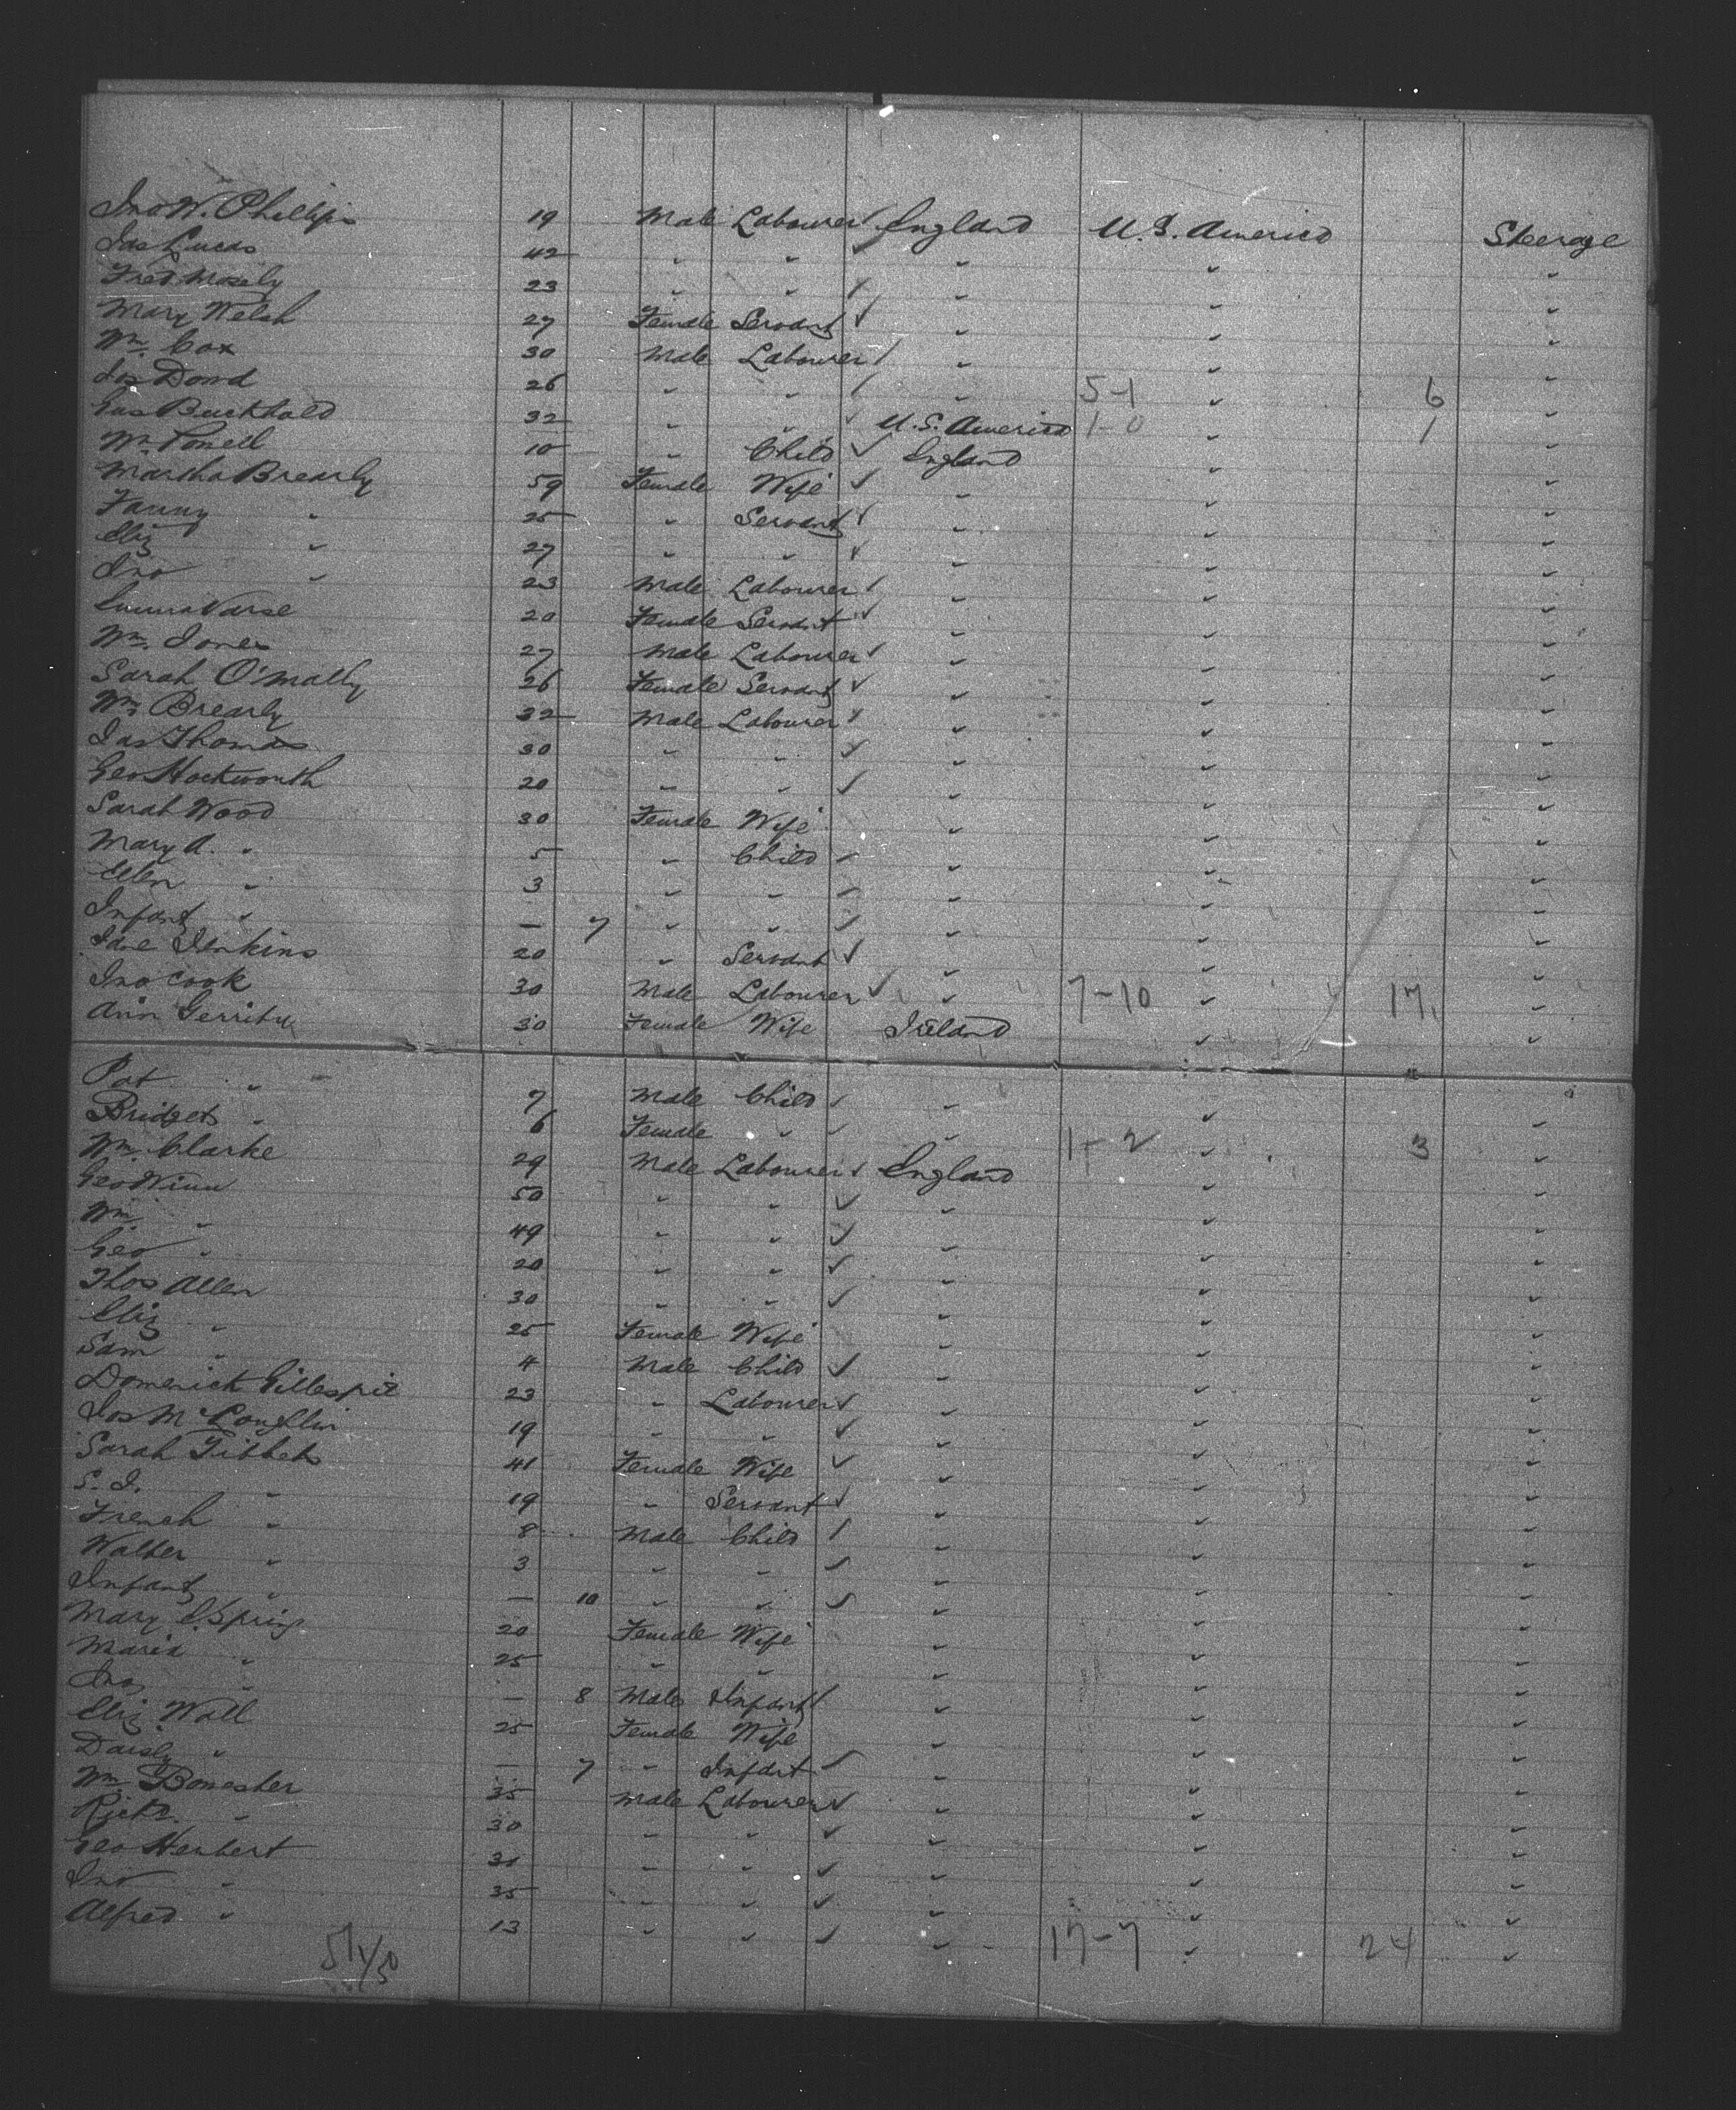 Jno W. Phillips 19 Male Labourer ✓ England U.S. America Steerage
Jas Lucas 42 " " ✓ " " "
Fred Mosely 23 " " ✓ " " "
Mary Welsh 27 Female Servant ✓ " " "
Wm. Cox 30 Male Labourer / " " "
Jos Dowd 26 " " / " 5-1 " 6 "
Gus Buckhold 32 " " ✓ U.S. America 1-0 " 1 "
Wm Powell 10 " Child ✓ England " "
Martha Brearly 59 Female Wife ✓ " " "
Fanny " 25 " Servant ✓ " " "
Eliz " 27 " " ✓ " " "
Jno " 23 Male Labourer ✓ " " "
Emma Varse 20 Female Servant ✓ " " "
Wm. Jones 27 Male Labourer ✓ " " "
Sarah O'Mally 26 Female Servant ✓ " " "
Wm Brearly 32 Male Labourer ✓ " " "
Jas Thomas 30 " " ✓ " " "
Geo Hockworth 20 " " ✓ " " "
Sarah Wood 30 Female Wife " " "
Mary A. " 5 " Child ✓ " " "
Ellen " 3 " " ✓ " " "
Infant " — 7 " " ✓ " " "
Jane Jenkins 20 " Servant ✓ " " "
Jno Cook 30 Male Labourer ✓ " 7-10 " 17 "
Ann Gerrity 30 Female Wife Ireland " "
Pat " 7 Male Child ✓ " " "
Bridget " 6 Female " ✓ " 1-2 " 3 "
Wm. Clarke 29 Male Labourer ✓ England " "
Geo Winn 50 " " ✓ " " "
Wm. " 49 " " ✓ " " "
Geo " 20 " " ✓ " " "
Thos Allen 30 " " ✓ " " "
Eliz " 25 Female Wife " " "
Sam " 4 Male Child ✓ " " "
Domenick Gillespie 23 " Labourer ✓ " " "
Jos McLoughlin 19 " " ✓ " " "
Sarah Tibbets 41 Female Wife ✓ " " "
S. J. " 19 " Servant ✓ " " "
French " 8 Male Child / " " "
Walter " 3 " " ✓ " " "
Infant " — 10 " " ✓ " " "
Mary E. Spring 20 Female Wife " " "
Maria " 25 " " " " "
Jno " — 8 Male Infant / " " "
Eliz Wall 25 Female Wife " " "
Daisy " — 7 " Infant ✓ " " "
Wm 35 Male Labourer ✓ " " "
Richd. " 30 " " ✓ " " "
Geo Herbert 31 " " ✓ " " "
Jno " 35 " " ✓ " " "
Alfred " 13 " " ✓ " 17-7 " 24 "